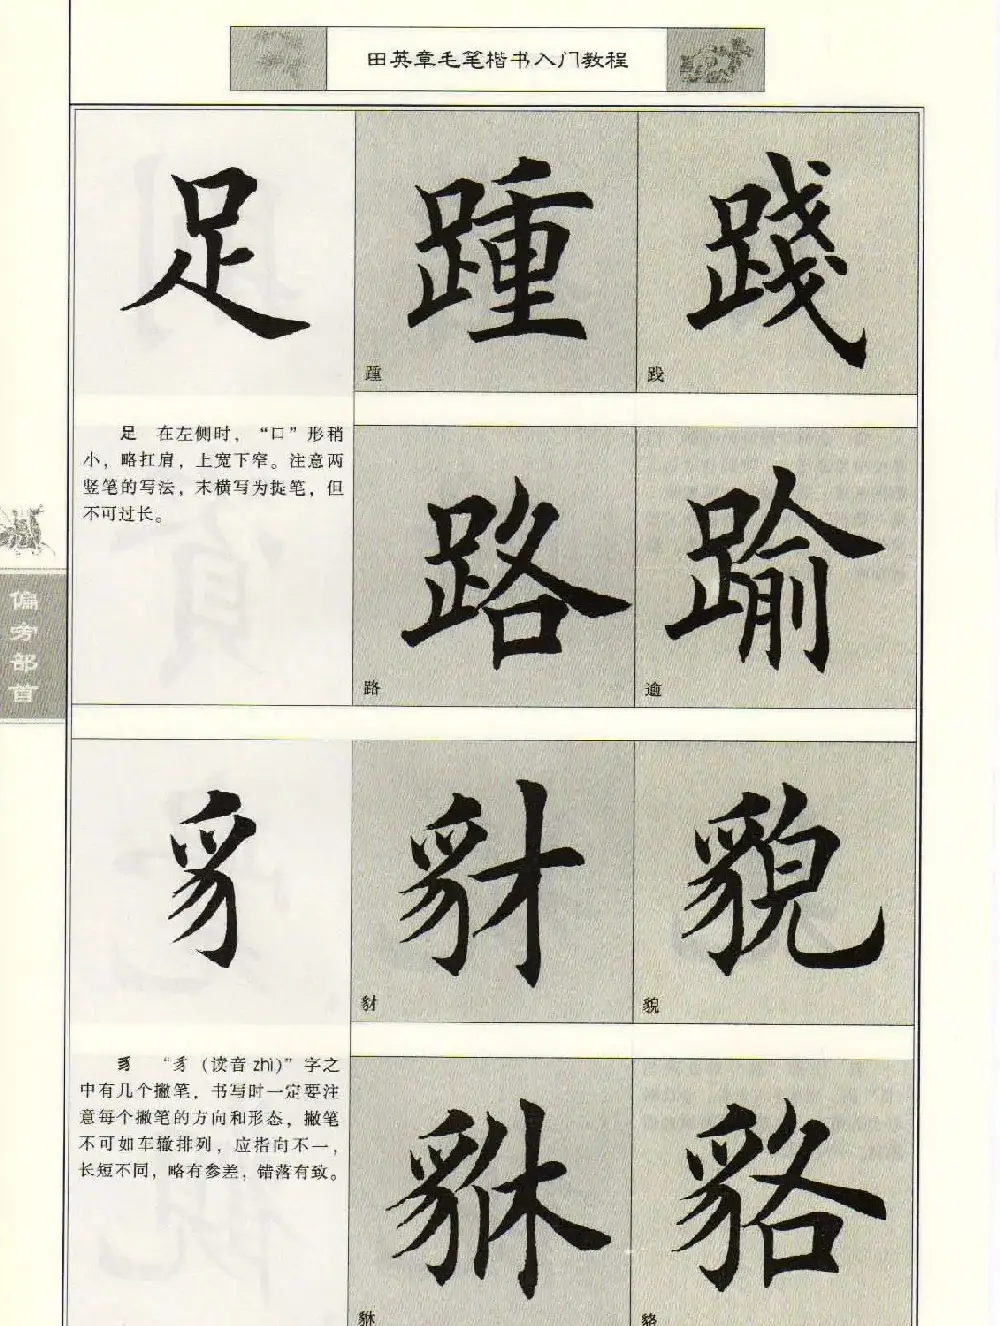 田英章毛笔楷书入门教程
足 踵 踐
踵 践
足 在左侧时，“口”形稍
小，略扛肩，上宽下窄。注意两
竖笔的写法，末横写为提笔，但
不可过长。
路 踰
路 逾
偏旁部首
豸 豺 貌
豺 貌
豸 “豸（读音 zhì）”字之
中有几个撇笔，书写时一定要注
意每个撇笔的方向和形态，撇笔
不可如车辙排列，应指向不一，
长短不同，略有参差，错落有致。
貅 貉
貅 貉